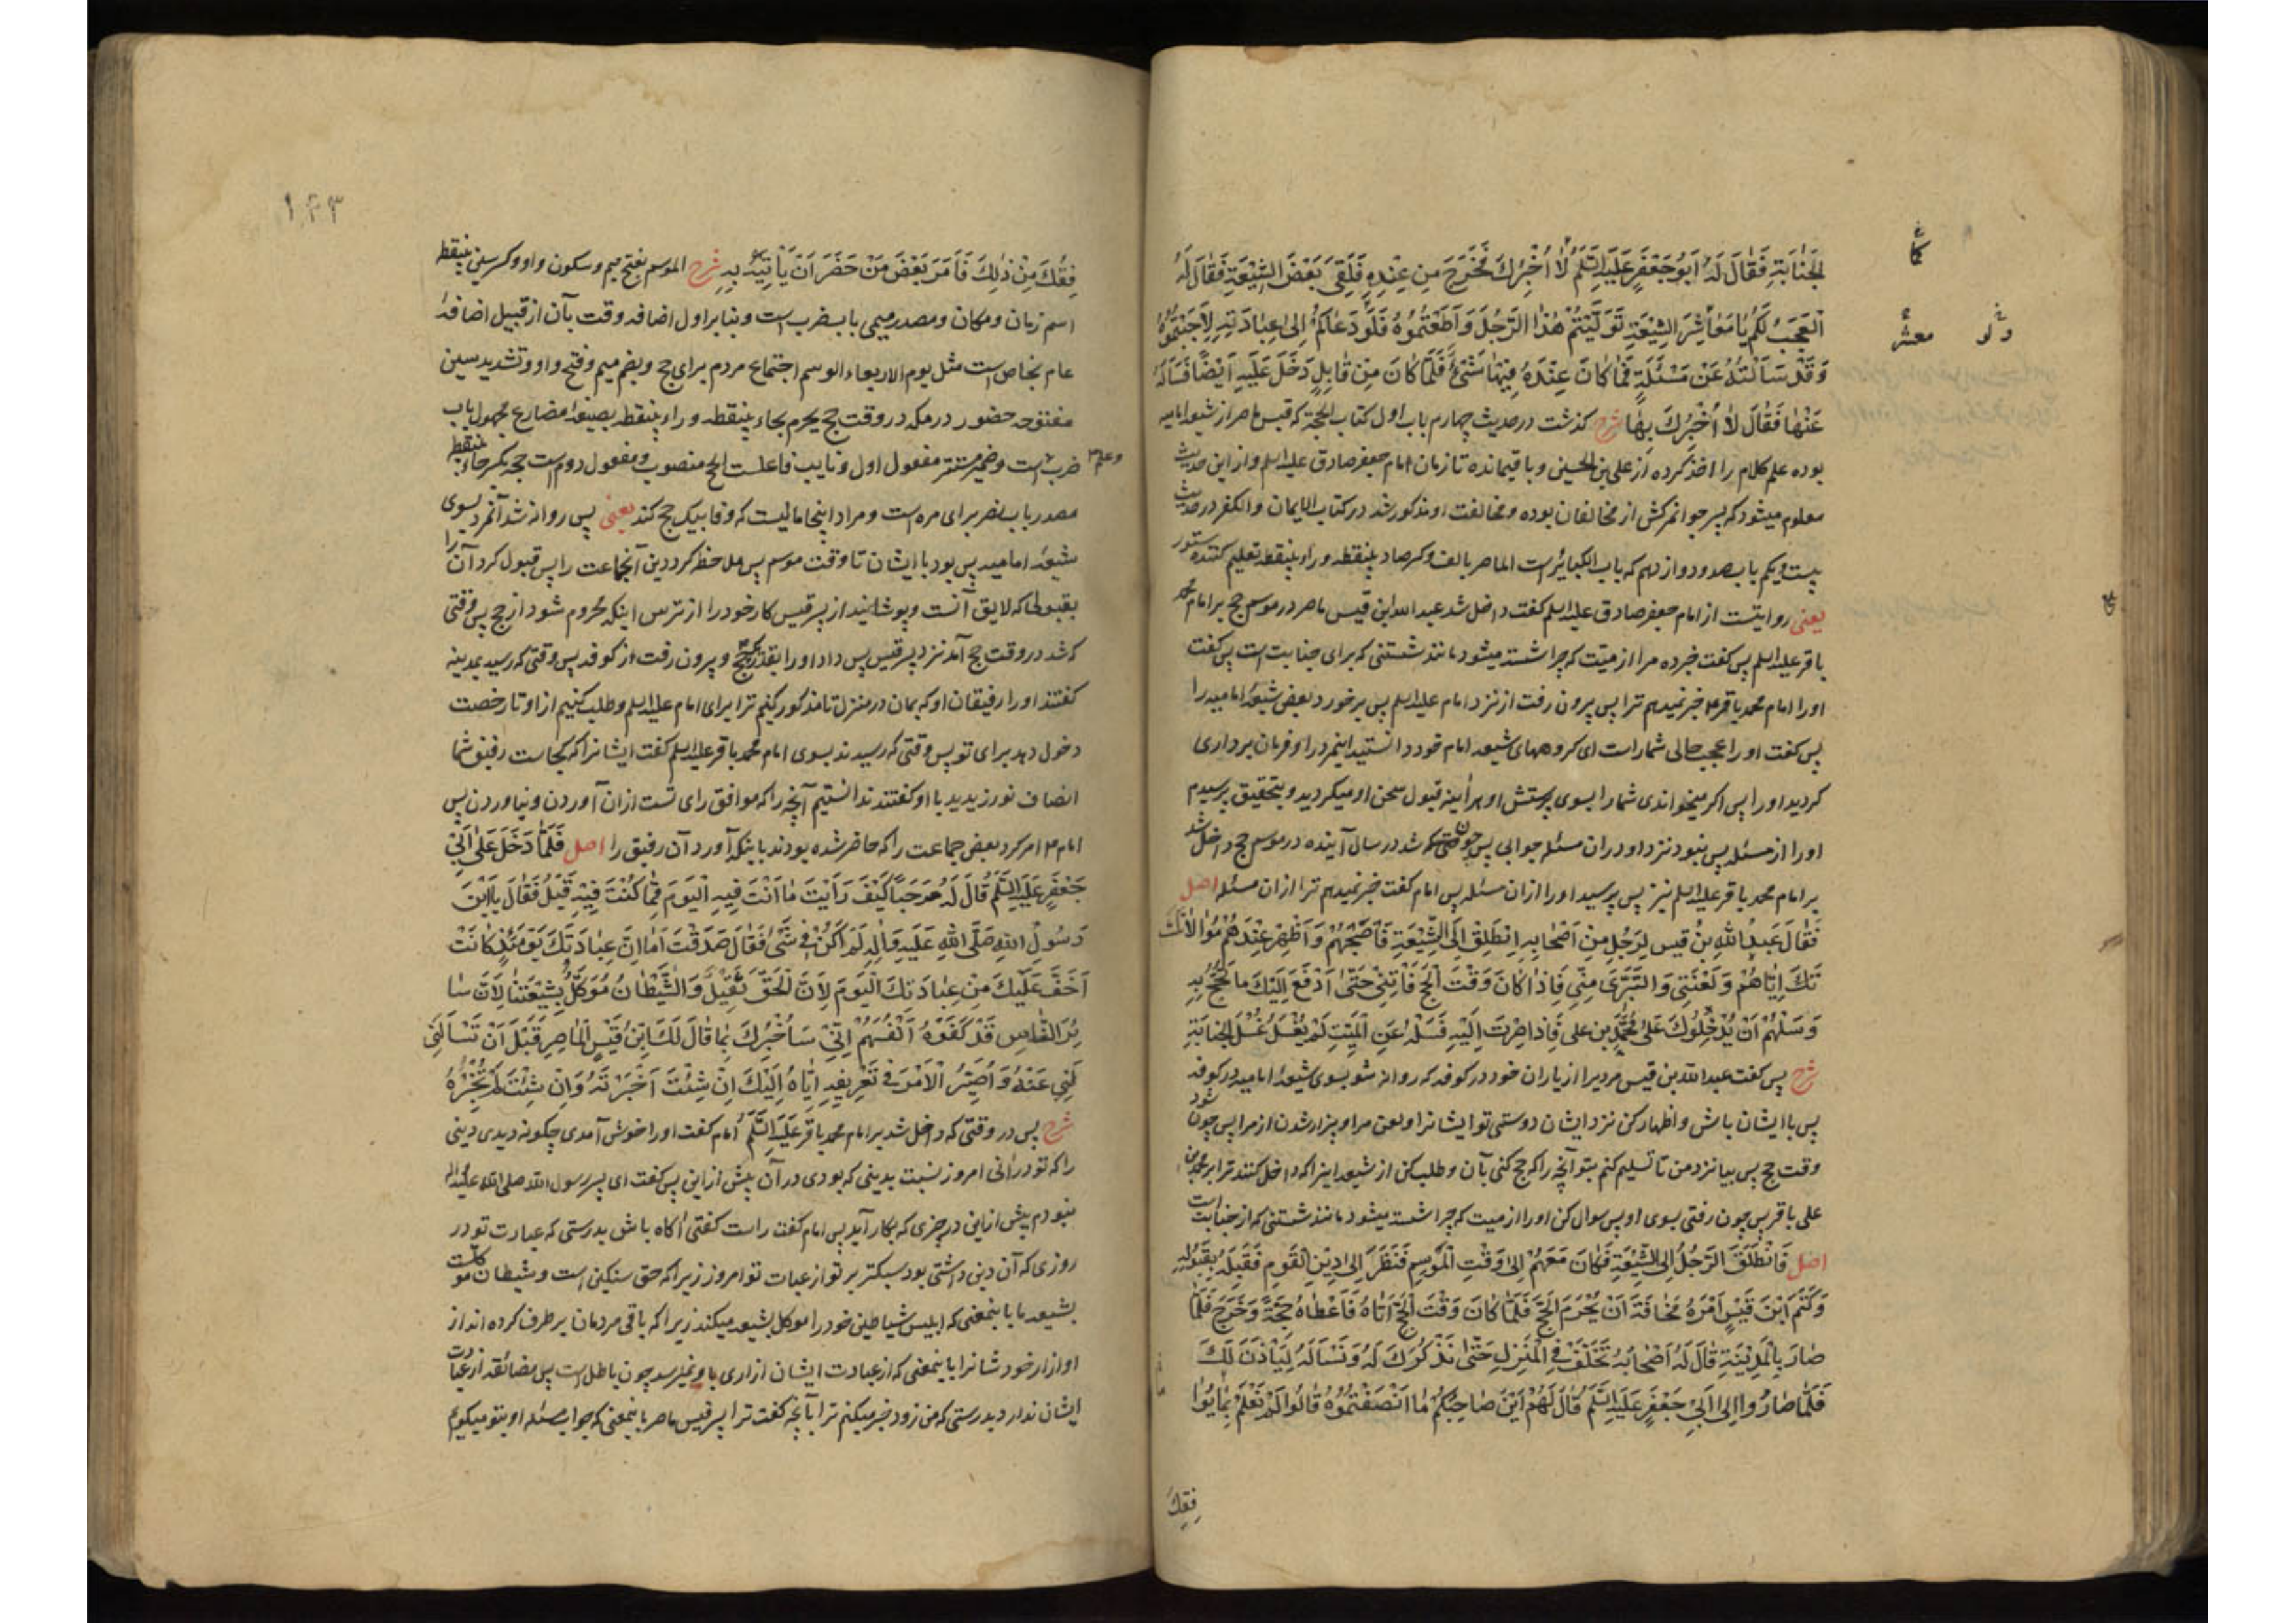 الجَنَابَةِ فَقَالَ لَهُ اَبُو جَعْفَرٍ عَلَيْهِ السَّلَمُ لَا اُخْبِرُكَ فَخَرَجَ مِنْ عِنْدِهِ فَلَقِىَ بَعْضَ الشِّيْعَةِ فَقَالَ لَهُ
اَلْعَجَبُ لَكُمْ يَا مَعَاشِرَ الشِّيْعَةِ تَوَلَّيْتُمْ هٰذَا الرَّجُلَ وَاَطَعْتُمُوهُ فَلَوْ دَعَاكُمْ اِلىٰ عِبَادَتِهِ لَاَجَبْتُمُوهُ
وَقَدْ سَاَلْتُهُ عَنْ مَسْئَلَةٍ فَمَا كَانَ عِنْدَهُ فِيْهَا شَىْءٌ فَلَمَّا كَانَ مِنْ قَابِلٍ دَخَلَ عَلَيْهِ اَيْضًا فَسَاَلَهُ
عَنْهَا فَقَالَ لَا اُخْبِرُكَ بِهَا شرح كذشت در حدیث چهارم باب اول کتاب الحجة که قیس ماصر از شیعه امامیه
بوده علم کلام را اخذ کرده از علی بن الحسین و باقیمانده تا زمان امام جعفر صادق علیه السلم و از این حدیث
معلوم میشود که پسر جوانمرکش از مخالفان بوده و مخالفت او مذکور شد در کتاب الایمان والکفر در حدیث
بیست و یکم باب صد و دوازدهم که باب الکبائر است الماصر بالف و کسر صاد بینقطه و راء بینقطه تعلیم کننده ستور
یعنی روایتست از امام جعفر صادق علیه السلم کفت داخل شد عبد الله ابن قیس ماصر در موسم حج بر امام محمد
باقر علیه السلم پس کفت خبر ده مرا از میّت که چرا شسته میشود مانند شستنی که برای جنابت است پس کفت
اورا امام محمد باقر ع خبر نمیدهم ترا پس بیرون رفت از نزد امام علیه السلم پس برخورد بعض شیعهٔ امامیه را
پس کفت اورا عجب حالی شماراست ای کروههای شیعه امام خود دانستید اینمرد را و فرمان برداری
کردید اورا پس اکر میخواندی شمارا بسوی پرستش او هر آینه قبول سخن او میکردید و بتحقیق پرسیدم
اورا از مسئله پس نبود نزد او در ان مسئله جوابی پس چون شد در سال آینده در موسم حج داخل شد
بر امام محمد باقر علیه السلم نیز پس پرسید اورا از ان مسئله پس امام کفت خبر نمیدهم ترا از ان مسئله اصل
فَقَالَ عَبدُ اللهِ بنُ قَيس لِرَجُلٍ مِنْ اَصْحَابِهِ انْطَلِقْ اِلَى الشِّيْعَةِ فَاصْحَبْهُمْ وَاَظْهِرْ عِنْدَهُمْ مُوَالَاتَكَ
اِيَّاهُمْ وَلَعْنَتِي وَالتَّبَرِّىَ مِنِّي فَاِذَا كَانَ وَقْتُ الْحَجِّ فَاْتِنِي حَتّىٰ اَدْفَعَ اِلَيْكَ مَا تَحُجُّ بِهِ
وَسَلْهُمْ اَنْ يُدْخِلُوكَ عَلىٰ مُحَمَّدِ بنِ عَلى فَاِذَا صِرْتَ اِلَيْهِ فَسَلْهُ عَنِ الْمَيِّتِ لِمَ يُغْسَلُ غُسْلَ الجَنَابَةِ
شرح پس کفت عبد الله بن قیس مردیرا از یاران خود در کوفه که روانه شو بسوی شیعهٔ امامیه در کوفه
پس با ایشان باش و اظهار کن نزد ایشان دوستی تو ایشانرا و لعن مرا و بیزار شدن از مرا پس چون شود
وقت حج پس بیا نزد من تا تسلیم کنم بتو آنچه را که حج کنی بآن و طلب کن از شیعه اینرا که داخل کنند ترا بر محمد بن
علی باقر پس چون رفتی بسوی او پس سوال کن اورا از میت که چرا شسته میشود مانند شستنی که از جنابت است
اصل فَانْطَلَقَ الرَّجُلُ اِلَى الشِّيْعَةِ فَكَانَ مَعَهُمْ اِلىٰ وَقْتِ الْمَوسِمِ فَنَظَرَ اِلىٰ دِيْنِ الْقَومِ فَقَبِلَهُ بِقَبُولِهِ
وَكَتَمَ ابْنَ قَيْسٍ اَمْرَهُ مَخَافَةَ اَنْ يُحْرَمَ الحَجَّ فَلَمَّا كَانَ وَقْتُ الْحَجِّ اَتَاهُ فَاَعْطَاهُ حَجَّةً وَخَرَجَ فَلَمَّا
صَارَ بِالْمَدِيْنَةِ قَالَ لَهُ اَصْحَابُهُ تَخَلَّفْ فِى الْمَنْزِلِ حَتّىٰ نَذْكُرَكَ لَهُ وَنَسْاَلَهُ لِيَاْذَنَ لَكَ
فَلَمَّا صَارُوا اِلىٰ اَبِي جَعْفَرٍ عَلَيْهِ السَّلَمُ قَالَ لَهُمْ اَيْنَ صَاحِبُكُمْ مَا اَنْصَفْتُمُوهُ قَالُوا لَمْ نَعْلَمْ مَا يُوَا
فِقُكَ
۱۴۳
فِقُكَ مِنْ ذٰلِكَ فَاَمَرَ بَعْضَ مَنْ حَضَرَ اَنْ يَاْتِيَهُ بِهِ شرح الموسم بفتح میم و سکون واو و کسر سین بینقطه
اسم زمان و مکان و مصدر میمی باب ضرب است و بنابر اول اضافه وقت بآن از قبیل اضافهٔ
عام بخاص است مثل یوم الاربعاء الوسم اجتماع مردم برای حج و بضم میم و فتح واو و تشدید سین
مفتوحه حضور در مکه در وقت حج یحرم بحاء بینقطه و راء بینقطه بصیغهٔ مضارع مجهول باب
ضرب است و ضمیر مستتر مفعول اول و نایب فاعلست الحج منصوب و مفعول دوم است حجه بکسر حاء بینقطه
مصدر باب نصر برای مره است و مراد اینجا مالیست که وفا بیک حج کند یعنی پس روانه شد آنمرد بسوی
شیعهٔ امامیه پس بود با ایشان تا وقت موسم پس ملاحظه کرد دین آنجماعت را پس قبول کرد آن را
بقبولی که لایق آنست و پوشانید از پسر قیس کار خود را از ترس اینکه محروم شود از حج پس وقتی
که شد در وقت حج آمد نزد پسر قیس پس داد اورا بقدر حج و بیرون رفت از کوفه پس وقتی که رسید بمدینه
کفتند اورا رفیقان او که بمان در منزل تا مذکور کنیم ترا برای امام علیه السلم و طلب کنیم از او تا رخصت
دخول دهد برای تو پس وقتی که رسیدند بسوی امام محمد باقر علیه السلم کفت ایشانرا که کجاست رفیق شما
انصاف نورزیدید با او کفتند ندانستیم آنچه را که موافق رای تست از ان آوردن و نیاوردن پس
امام ع امر کرد بعض جماعت را که حاضر شده بودند باینکه آورد آن رفیق را اصل فَلَمَّا دَخَلَ عَلىٰ اَبِي
جَعْفَرٍ عَلَيْهِ السَّلَمُ قَالَ لَهُ مَرْحَبًا كَيْفَ رَاَيْتَ مَا اَنْتَ فِيهِ الْيَوْمَ مِمَّا كُنْتَ فِيْهِ قَبْلُ فَقَالَ يَا ابْنَ
رَسُولِ اللهِ صَلَّى اللهِ عَلَيْهِ وَاٰلِهِ لَمْ اَكُنْ فِى شَىْءٍ فَقَالَ صَدَقْتَ اَمَا اِنَّ عِبَادَتَكَ يَوْمَئِذٍ كَانَتْ
اَخَفَّ عَلَيْكَ مِنْ عِبَادَتِكَ الْيَومَ لِاَنَّ الْحَقَّ ثَقِيْلٌ وَالشَّيْطَانُ مُوَكَّلٌ بِشِيْعَتِنَا لِاَنَّ سَا
ئِرَ النَّاسِ قَدْ كَفَوْهُ اَنْفُسَهُمْ اِنِّيْ سَاُخْبِرُكَ بِمَا قَالَ لَكَ ابْنُ قَيْسٍ الْمَاصِرِ قَبْلَ اَنْ تَسْاَلَنِي
عَنْهُ وَاُصَيِّرُ الْاَمْرَ فِى تَعْرِيفِهِ اِيَّاهُ اِلَيْكَ اِنْ شِئْتَ اَخْبَرْتَهُ وَاِنْ شِئْتَ لَمْ تُخْبِرْهُ
شرح پس در وقتی که داخل شد بر امام محمد باقر عَلَيْهِ السَّلَمُ امام کفت اورا خوش آمدی چکونه دیدی دینی
را که تو در آنی امروز نسبت بدینی که بودی در آن پیش از این پس کفت ای پسر رسول الله صلی الله علیه و اله
نبودم پیش از این در چیزی که بکار آید پس امام کفت راست کفتی آکاه باش بدرستی که عبادت تو در
روزی که آن دین داشتی بود سبکتر بر تو از عبادت تو امروز زیرا که حق سنکین است و شیطان موکلست
بشیعه ما باینمعنی که ابلیس شیاطین خود را موکل بشیعه میکند زیرا که باقی مردمان برطرف کرده اند از
او ازار خودشانرا باینمعنی که از عبادت ایشان ازاری باو نمیرسد چون باطل است پس مضائقه از عبادت
ایشان ندارد بدرستی که من زود خبر میکنم ترا بآنچه کفت ترا پسر قیس ماصر باینمعنی که جواب مسئله او بتو میکویم